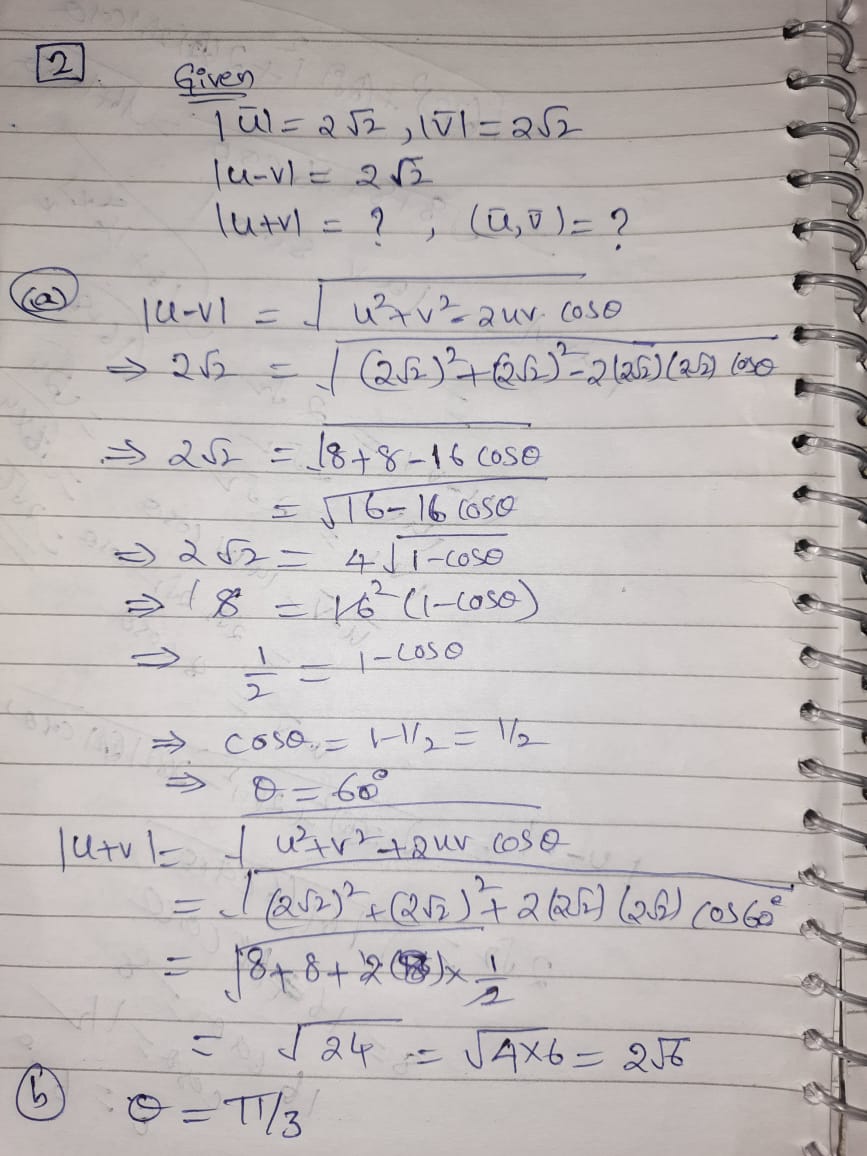 2.
Given
|ū| = 2√2, |v̄| = 2√2
|u-v| = 2√2
|u+v| = ? , (ū, v̄) = ?
(a) |u-v| = √u²+v²-2uv. cosθ
⇒ 2√2 = √(2√2)²+(2√2)²-2(2√2)(2√2) cosθ
⇒ 2√2 = √8+8-16 cosθ
= √16-16 cosθ
⇒ 2√2 = 4√1-cosθ
⇒ 1 8 = 16² (1-cosθ)
⇒ 1/2 = 1-cosθ
⇒ cosθ = 1-1/2 = 1/2
⇒ θ = 60°
|u+v| = √u²+v²+2uv cosθ
= √(2√2)²+(2√2)²+2(2√2)(2√2) cos60°
= √8+8+2(8)× 1/2
= √24 = √4×6 = 2√6
(b) θ = π/3